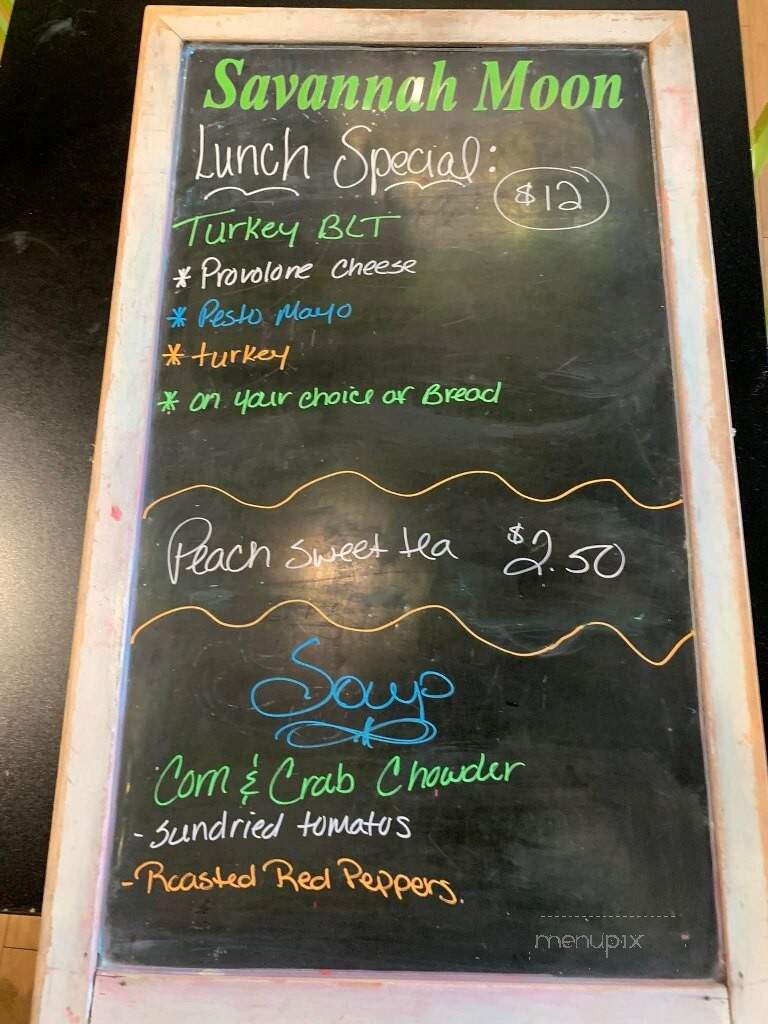 Savannah Moon
Lunch Special:
$12
Turkey BLT
* Provolone cheese
* Pesto Mayo
* turkey
* on your choice of Bread
Peach sweet tea $2.50
Soup
Corn & Crab Chowder
- sundried tomatos
- Roasted Red Peppers.
menupix